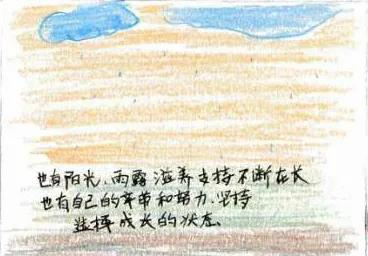 也有阳光、雨露滋养支持不断在长
也有自己的牵带和努力、坚持
选择成长的状态、